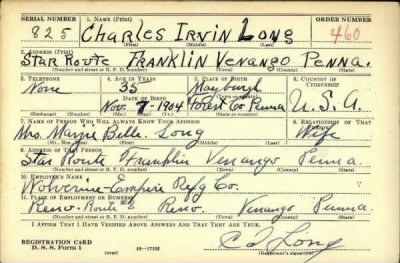 SERIAL NUMBER 1. NAME (Print) ORDER NUMBER
825 Charles Irvin Long 460
(First) (Middle) (Last)
2. ADDRESS (Print)
Star Route FRANKLIN Venango Penna.
(Number and street or R. F. D. number) (Town) (County) (State)
3. TELEPHONE 4. AGE IN YEARS 5. PLACE OF BIRTH 6. COUNTRY OF CITIZENSHIP
None 35 Mayburgh
DATE OF BIRTH (Town or county)
Nov. 7, 1904 Forest Co Penna U.S.A.
(Mo.) (Day) (Yr.) (State or country)
7. NAME OF PERSON WHO WILL ALWAYS KNOW YOUR ADDRESS 8. RELATIONSHIP OF THAT PERSON
Mrs. Belle Long Wife
(Mr., Mrs., Miss) (First) (Middle) (Last)
9. ADDRESS OF THAT PERSON
Star Route Franklin Venango Penna
(Number and street or R. F. D. number) (Town) (County) (State)
10. EMPLOYER'S NAME
Wolverine-Empire Refg Co.
11. PLACE OF EMPLOYMENT OR BUSINESS
Reno. Route 8 Reno. Venango Penna.
(Number and street or R. F. D. number) (Town) (County) (State)
I AFFIRM THAT I HAVE VERIFIED ABOVE ANSWERS AND THAT THEY ARE TRUE.
REGISTRATION CARD
D. S. S. Form 1 (over) 16-17105 C I Long
(Registrant's signature)